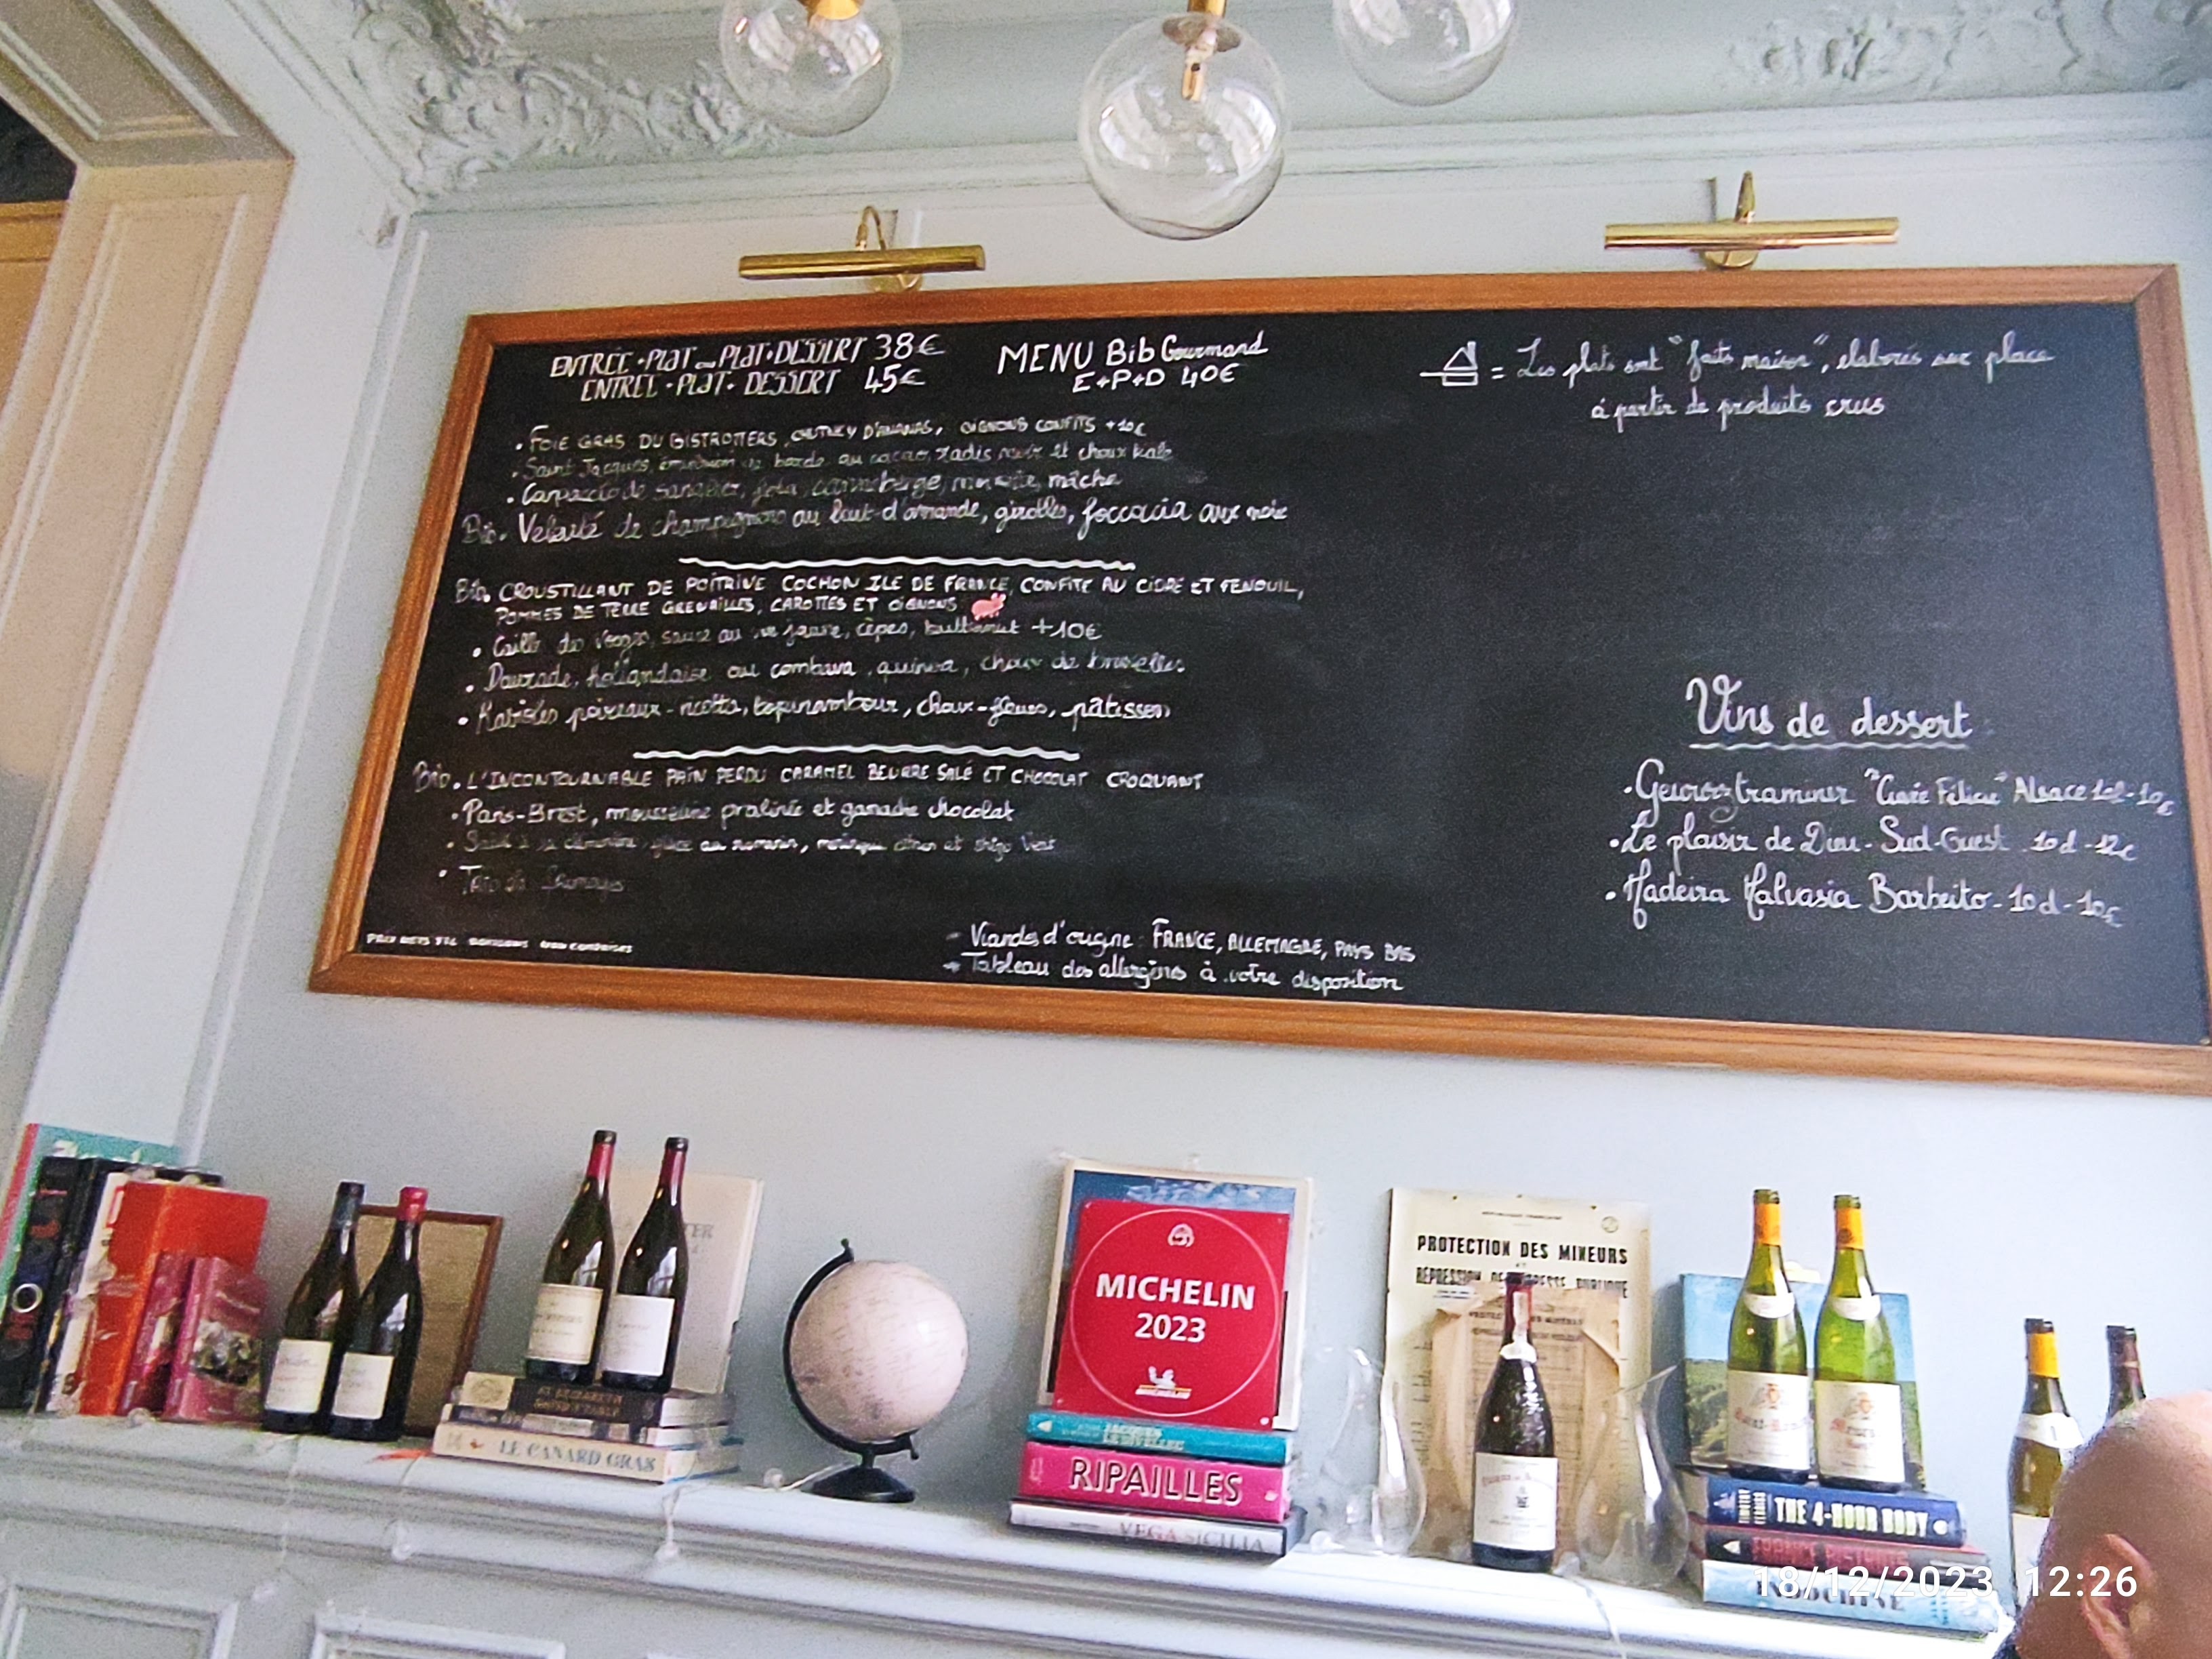 ENTRÉE + PLAT ou PLAT + DESSERT 38€
ENTRÉE + PLAT + DESSERT 45€
MENU Bib Gourmand
E+P+D 40€
= Les plats sont "faits maison", elaborés sur place
à partir de produits crus
• FOIE GRAS DU BISTROTTERS, CHUTNEY D'ANANAS, OIGNONS CONFITS +10€
• Saint Jacques, au cacao, radis noir et choux kale
• Carpaccio de sanglier, feta, mâche
Bib. Velouté de champignons au lait d'amande, girolles, foccacia aux noix
Bib. CROUSTILLANT DE POITRINE COCHON ILE DE FRANCE, CONFITE AU CIDRE ET FENOUIL,
POMMES DE TERRE GRENAILLES, CAROTTES ET OIGNONS
• Caille des Vosges, sauce au vin jaune, cèpes, butternut +10€
• Daurade, hollandaise au combava, quinoa, choux de bruxelles
• Ravioles poireaux-ricotta, topinambour, choux-fleurs, pâtisson
Bib. L'INCONTOURNABLE PAIN PERDU CARAMEL BEURRE SALÉ ET CHOCOLAT CROQUANT
• Paris-Brest, mousseline pralinée et ganache chocolat
• glace au romarin, meringue citron et shiso vert
•
PRIX NETS TTC BOISSONS NON COMPRISES
- Viandes d'origine: FRANCE, ALLEMAGNE, PAYS BAS
- Tableau des allergènes à votre disposition
Vins de dessert
• Gewurztraminer "Cuvée Félicie" Alsace 10d-10€
• Le plaisir de Dieu - Sud-Ouest 10d-12€
• Madeira Malvasia Barbeito - 10d-10€
MICHELIN
2023
MICHELIN
RÉPUBLIQUE FRANÇAISE
PROTECTION DES MINEURS
ET
RÉPRESSION DE L'IVRESSE PUBLIQUE
LE CANARD GRAS
RIPAILLES
VEGA SICILIA
THE 4-HOUR BODY
18/12/2023 12:26